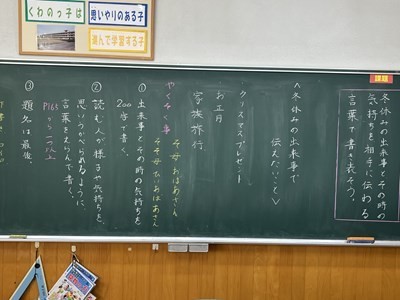 くわのっ子は
思いやりのある子
進んで学習する子
課題
冬休みの出来事とその時の
気持ちを相手に伝わる
言葉で書き表そう。
<冬休みの出来事で
伝えたいこと>
クリスマスプレゼント
お正月
家族旅行
やくそく事
そ母 おばあさん
そそ母 ひいおばあさん
① 出来事とその時の気持ちを
200字で書く。
② 読む人が様子や気持ちを
思いうかべられるように、
言葉をえらんで書く。
P165から一つ以上
③ 題名は最後。